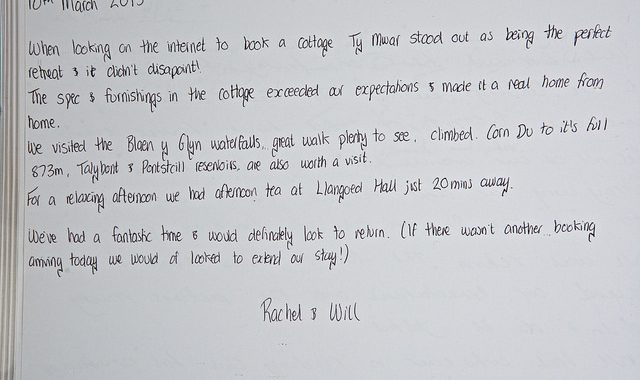 10th March 2013
When looking on the internet to book a cottage Ty Mwar stood out as being the perfect
retreat & it didn't disapoint!
The spec & furnishings in the cottage exceeded our expectations & made it a real home from
home.
We visited the Blaen y Glyn waterfalls, great walk plenty to see, climbed Corn Du to it's full
873m, Talybont & Pontsticill reservoirs, are also worth a visit.
For a relaxing afternoon we had afternoon tea at Llangoed Hall just 20mins away.
We've had a fantastic time & would definately look to return. (If there wasn't another booking
arriving today we would of looked to extend our stay!)
Rachel & Will